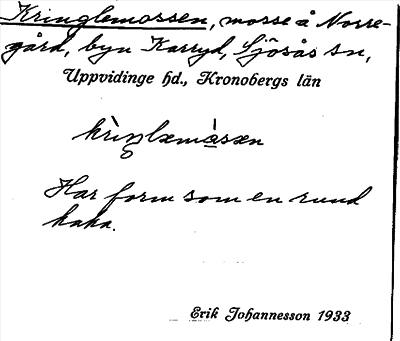 Kringlemossen, mosse å Norre-
gård, byn Karryd, Sjösås sn,
Uppvidinge hd., Kronobergs län
krìŋlæmåsæn
Har form som en rund
kaka.
Erik Johannesson 1933